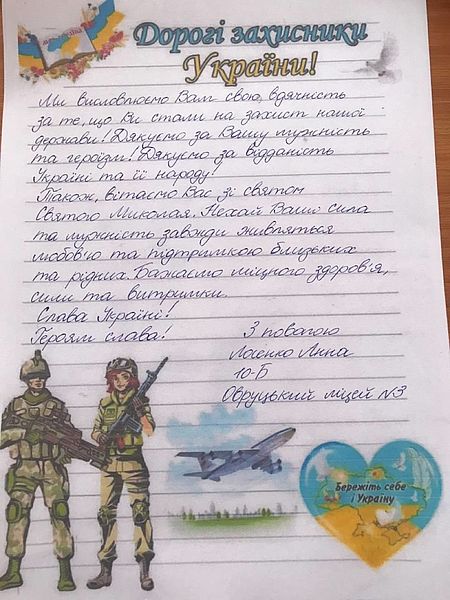 Дорогі захисники
України!
Ми висловлюємо Вам свою вдячність
за те, що Ви стали на захист нашої
держави! Дякуємо за Вашу мужність
та героїзм! Дякуємо за відданість
Україні та її народу!
Також, вітаємо Вас зі святом
Святого Миколая. Нехай Ваші сила
та мужність завжди живляться
любов'ю та підтримкою близьких
та рідних. Бажаємо міцного здоров'я,
сили та витримки.
Слава Україні!
Героям слава!
З повагою
Анна
10-Б
Овруцький ліцей №3
Бережіть себе
і Україну